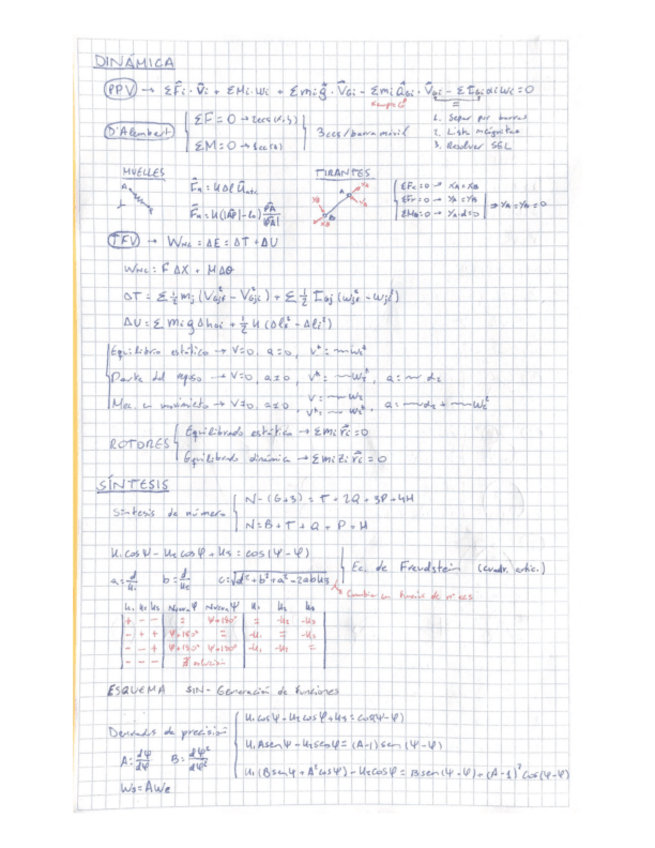 DINÁMICA
PPV → ΣF̄i · V̄i + ΣMi·ωi + Σmi ḡ · V̄Gi − Σmi āGi · V̄Gi − ΣIGi αi ωi = 0
siempre G
D'Alembert ΣF=0 → 2ecs (x,y)
ΣM=0 → 1ec (z)
3ecs/barra móvil
1. Separ por barras
2. Lista incógnitas
3. Resolver SEL
MUELLES
F̄u = kΔl ū
F̄u = k(|AP|−l₀) PA/|PA|
TIRANTES
ΣFx=0 → XA=XB
ΣFY=0 → YA=YB
ΣMB=0 → YA·d=0
⇒ YA=YB=0
TFV → WNC = ΔE = ΔT + ΔU
WNC = F ΔX + M Δθ
ΔT = Σ½ mj (VGjf² − VGji²) + Σ ½ IGj (ωjf² − ωji²)
ΔU = Σ mi g ΔhGi + ½ k (Δlf² − Δli²)
Equilibrio estático → V=0, a=0,
Parte del reposo → V=0, a≠0,
Mec. en movimiento → V≠0, a≠0,
ROTORES
Equilibrado estático → Σmi r̄i = 0
Equilibrado dinámico → Σmi zi r̄i = 0
SÍNTESIS
Síntesis de número
N − (G+3) = T + 2Q + 3P + 4H
N = B + T + Q + P + H
Ec. de Freudstein
a = d/k1 b = d/k2
Cambia en función de signos
k1 k2 k3 Nuevo φ Nuevo ψ k1 k2 k3
+ − − = ψ+180° = −k2 −k3
− + + φ+180° = −k1 = −k3
− − + φ+180° ψ+180° −k1 −k2 =
− − − ∄ solución
ESQUEMA SIN- Generación de funciones
Derivadas de precisión
A = dψ/dφ
k1 cosψ − k2 cosφ + k3 = cos(ψ−φ)
k1 A senψ − k2 senφ = (A−1) sen (ψ−φ)
k1 (B senψ + A² cosψ) − k2 cosφ = B sen(ψ−φ) + (A−1)² cos(ψ−φ)